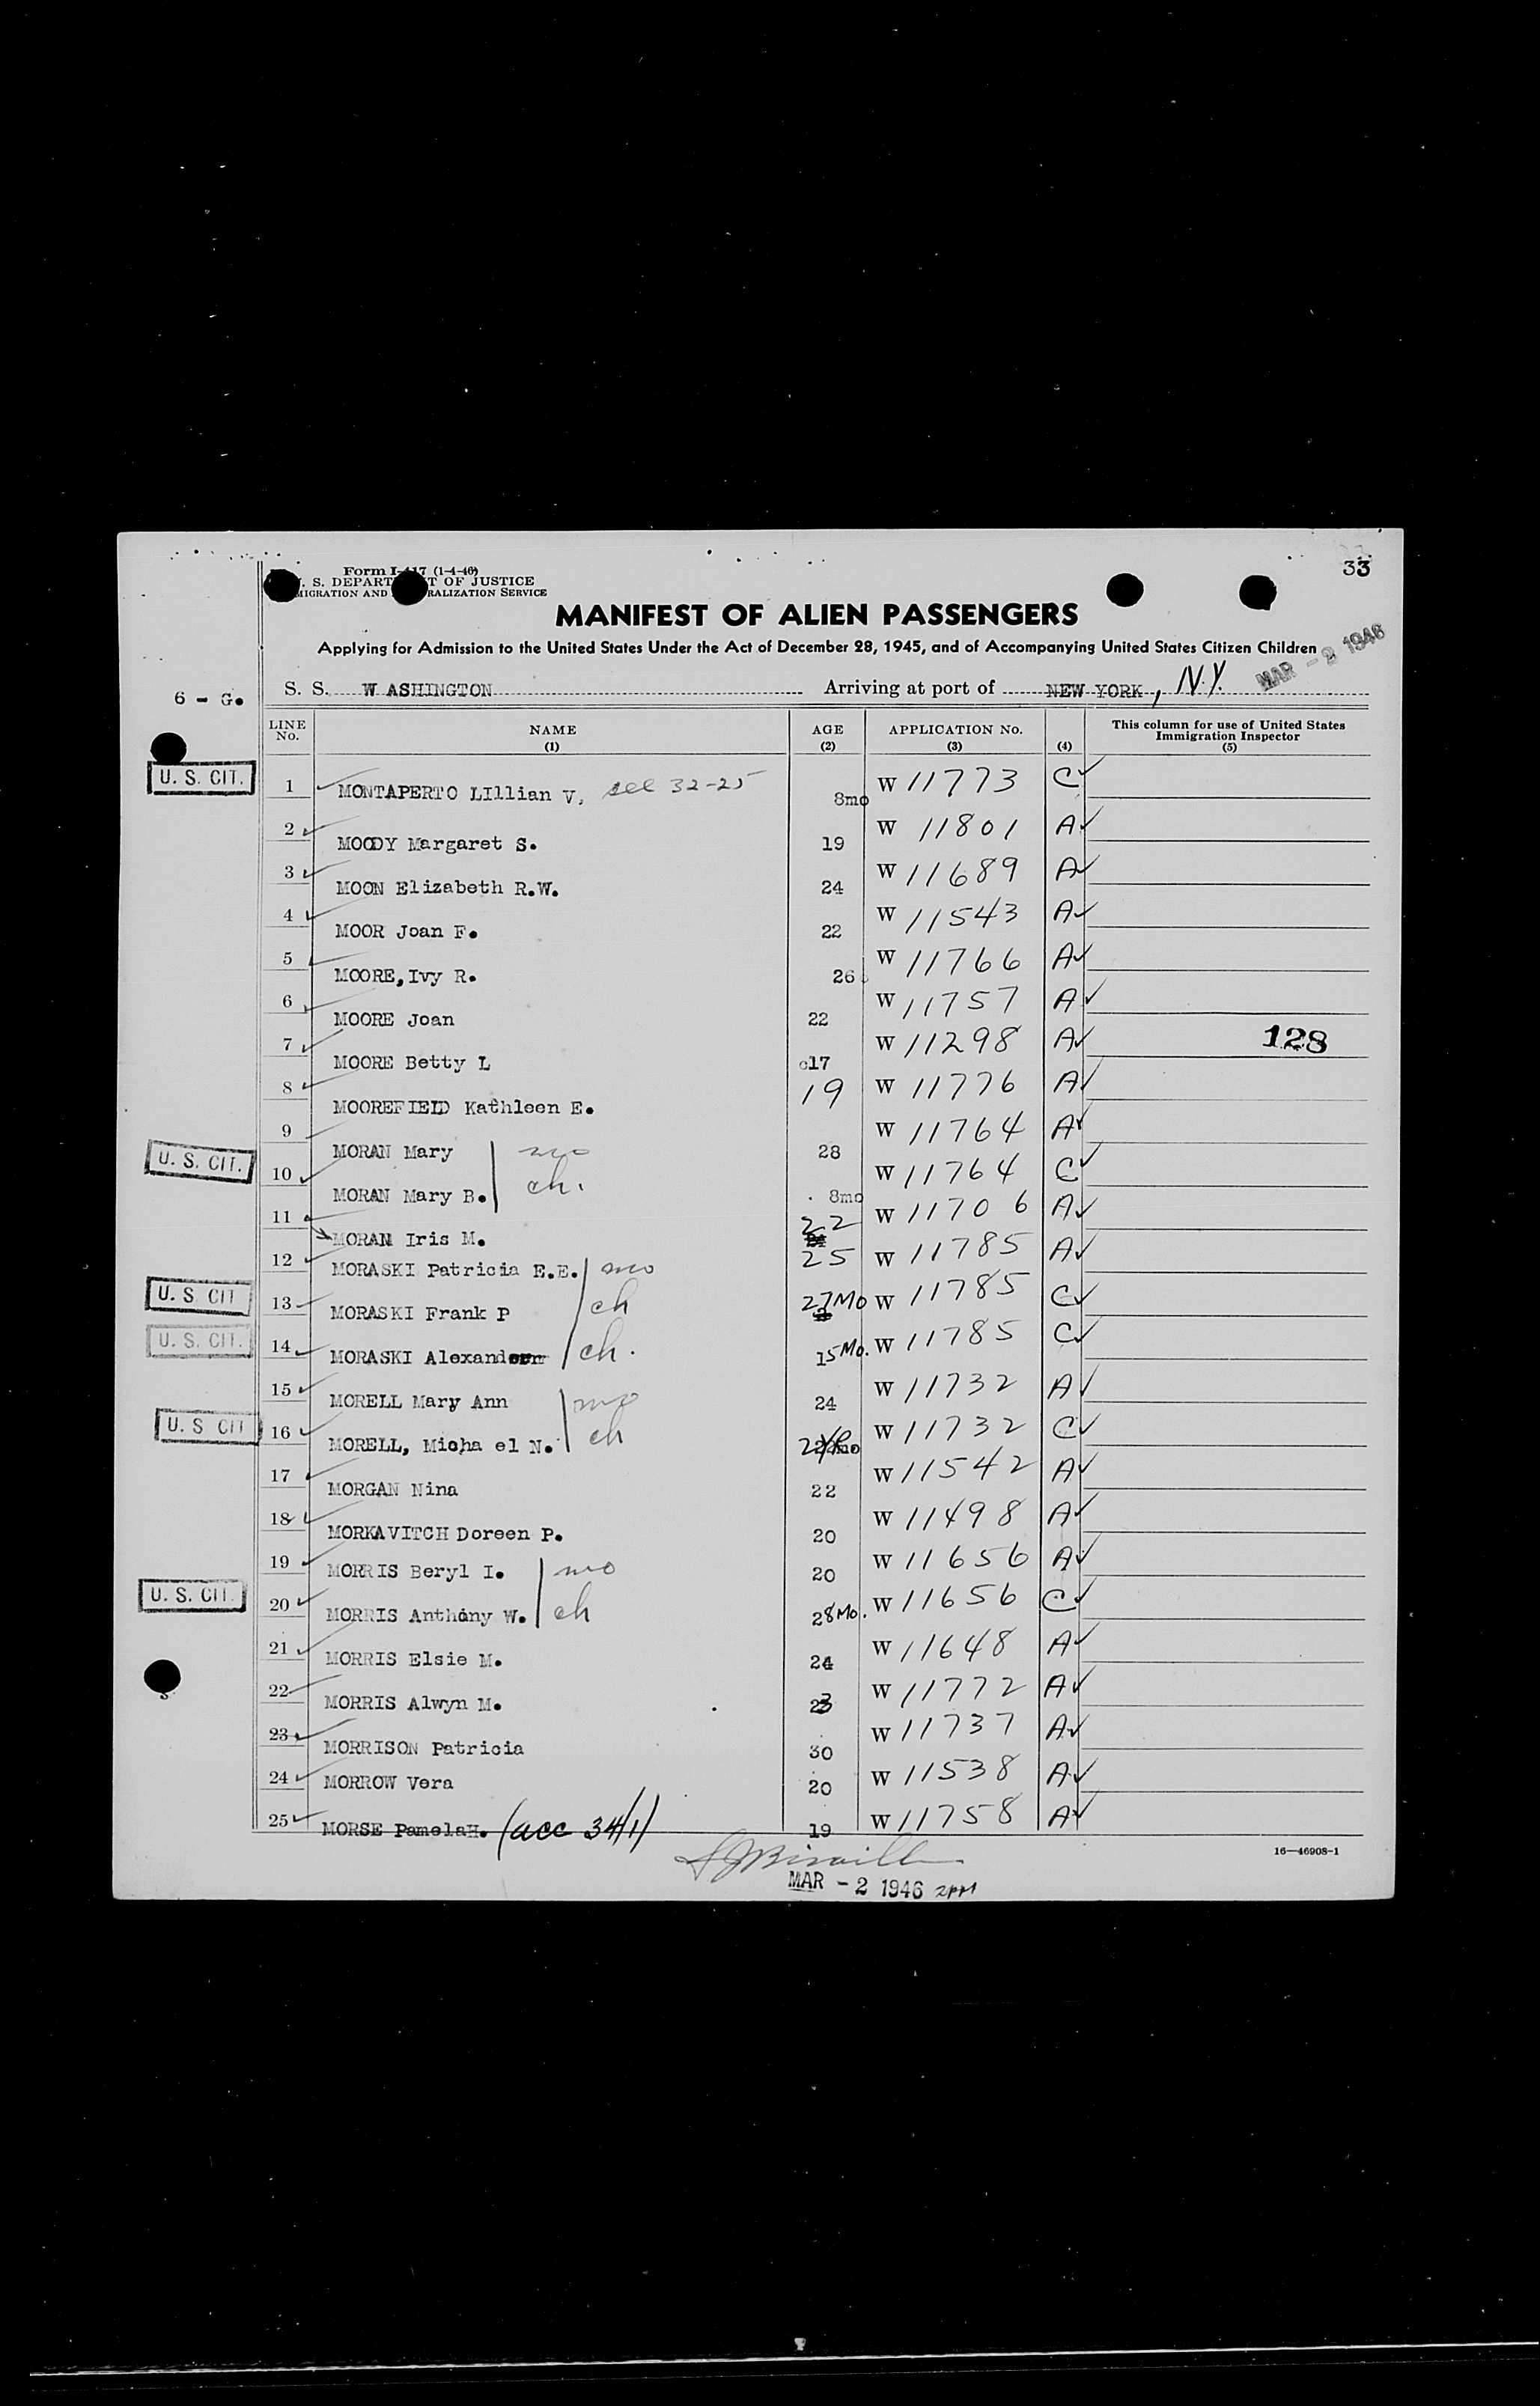 33
Form I-417 (1-4-46)
U. S. DEPARTMENT OF JUSTICE
IMMIGRATION AND NATURALIZATION SERVICE
MANIFEST OF ALIEN PASSENGERS
Applying for Admission to the United States Under the Act of December 28, 1945, and of Accompanying United States Citizen Children
MAR - 2 1946
6 - G.
S. S. W ASHINGTON Arriving at port of NEW YORK, N.Y.
LINE No. NAME (1) AGE (2) APPLICATION No. (3) (4) This column for use of United States Immigration Inspector (5)
U. S. CIT. 1 MONTAPERTO LIllian V. see 32-25 8mo W 11773 C
2 MOODY Margaret S. 19 W 11801 A
3 MOON Elizabeth R.W. 24 W 11689 A
4 MOOR Joan F. 22 W 11543 A
5 MOORE, Ivy R. 26 W 11766 A
6 MOORE Joan 22 W 11757 A
7 MOORE Betty L 17 W 11298 A 128
8 MOOREFIELD Kathleen E. 19 W 11776 A
9 MORAN Mary mo 28 W 11764 A
U. S. CIT. 10 MORAN Mary B. ch. 8mo W 11764 C
11 MORAN Iris M. 22 W 11706 A
12 MORASKI Patricia E.E. mo 25 W 11785 A
U. S. CIT 13 MORASKI Frank P ch 27 Mo W 11785 C
U. S. CIT. 14 MORASKI Alexander ch. 15 Mo. W 11785 C
15 MORELL Mary Ann mo 24 W 11732 A
U. S. CIT 16 MORELL, Micha el N. ch W 11732 C
17 MORGAN Nina 22 W 11542 A
18 MORKAVITCH Doreen P. 20 W 11498 A
19 MORRIS Beryl I. mo 20 W 11656 A
U. S. CIT. 20 MORRIS Anthony W. ch 28 Mo. W 11656 C
21 MORRIS Elsie M. 24 W 11648 A
22 MORRIS Alwyn M. 23 W 11772 A
23 MORRISON Patricia 30 W 11737 A
24 MORROW Vera 20 W 11538 A
25 MORSE PamelaH. (acc 34/1) 19 W 11758 A
16—46908-1
MAR - 2 1946 2PM